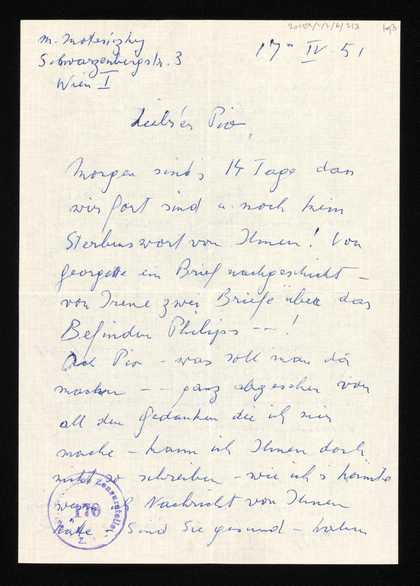 M. Matejcky
Schwarzenbergstr. 3
Wien I
17. IV. 51
Lieber Pio,
Morgen sind's 14 Tage dass
wir fort sind u. noch kein
Sterbenswort von Ihnen! Von
Georgette ein Brief nachgeschickt –
von Irene zwei Briefe über das
Befinden Philips – – !
Ach Pio – was soll man da
machen – – ganz abgesehen von
all den Gedanken die ich mir
mache – kann ich Ihnen doch
nicht so schreiben – wie ich's könnte
wenn ich Nachricht von Ihnen
hätte – Sind Sie gesund – haben
176